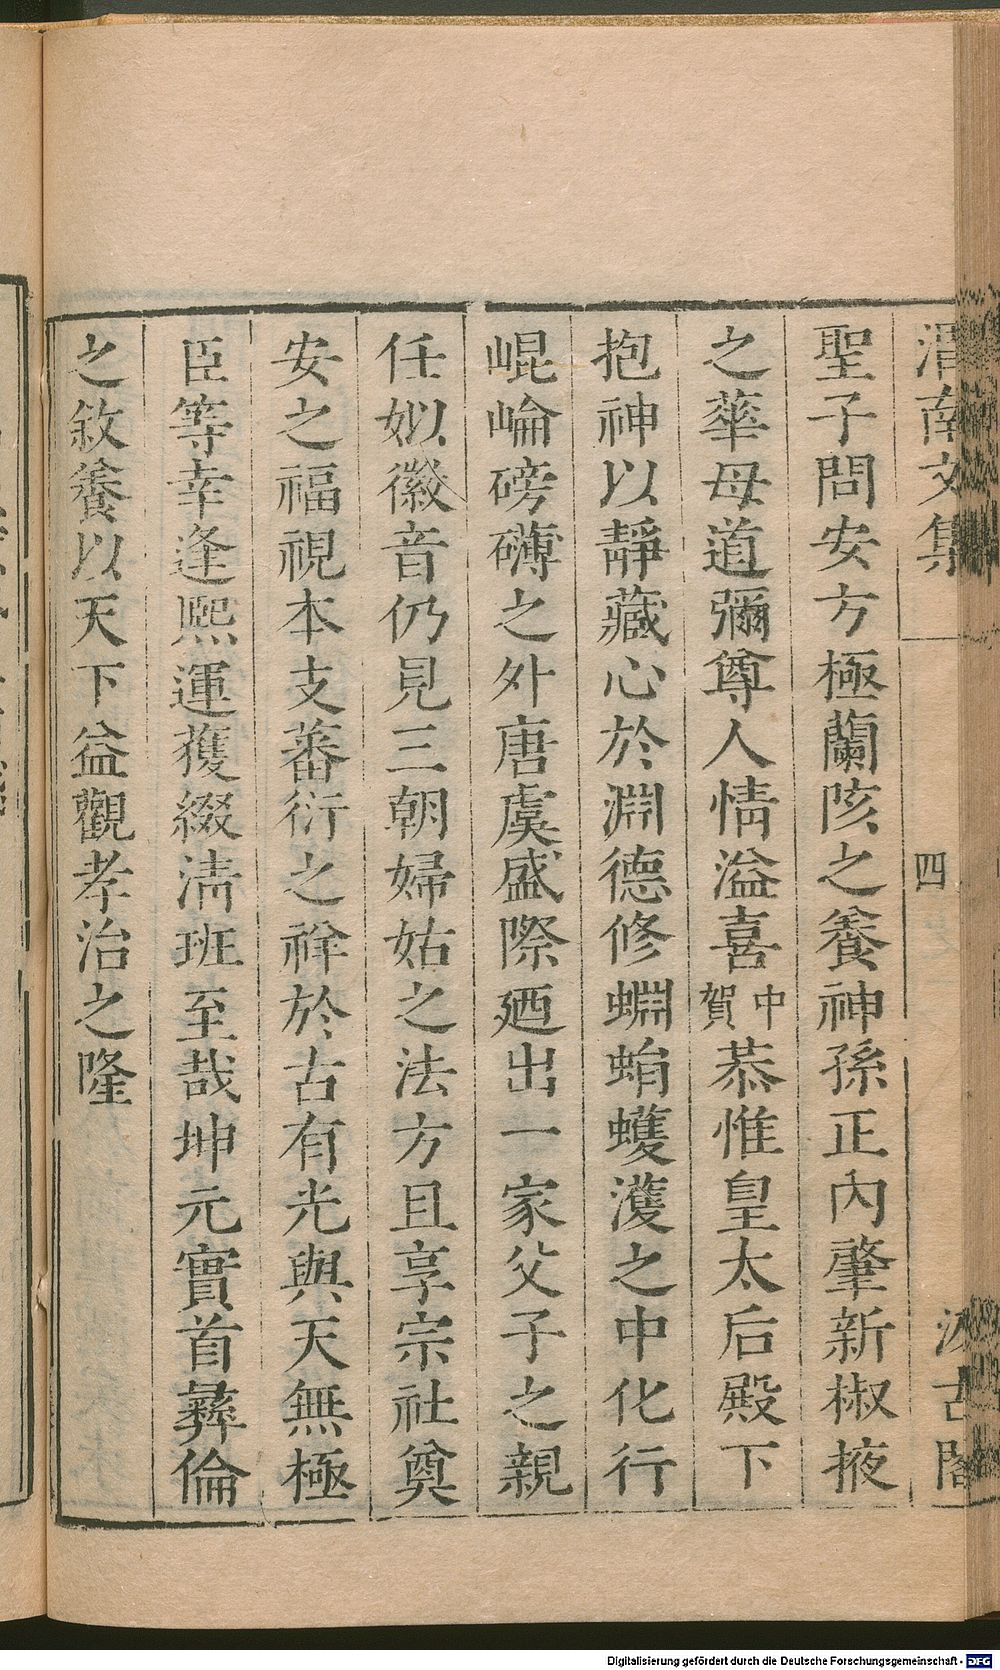 渭南文集
四
汲古閣
聖子問安方極蘭陔之養神孫正內肇新椒掖
之華母道彌尊人情溢喜中賀恭惟皇太后殿下
抱神以靜藏心於淵德修蜵蜎蠖濩之中化行
崐崘磅礴之外唐虞盛際廼出一家父子之親
任姒徽音仍見三朝婦姑之法方且享宗社奠
安之福視本支蕃衍之祥於古有光與天無極
臣等幸逢熙運獲綴淸班至哉坤元實首彝倫
之敘養以天下益觀孝治之隆
Digitalisierung gefördert durch die Deutsche Forschungsgemeinschaft - DFG